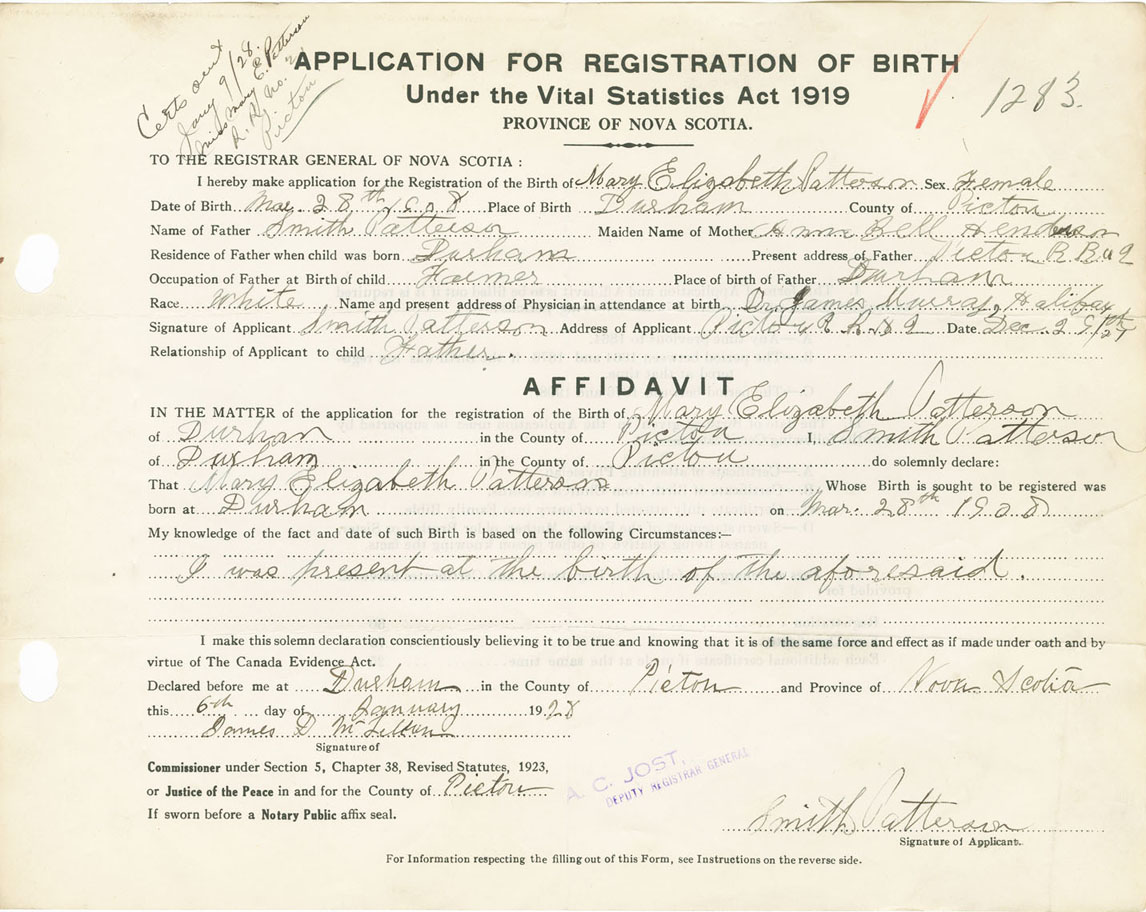 Certs sent
Jany 9/28.
Miss Mary E. Patterson
R. R. No. 2
Pictou
APPLICATION FOR REGISTRATION OF BIRTH
Under the Vital Statistics Act 1919
1283.
PROVINCE OF NOVA SCOTIA.
TO THE REGISTRAR GENERAL OF NOVA SCOTIA :
I hereby make application for the Registration of the Birth of Mary Elizabeth Patterson Sex Female
Date of Birth Mar. 28th 1908 Place of Birth Durham County of Pictou
Name of Father Smith Patterson Maiden Name of Mother Anna Bell Henderson
Residence of Father when child was born Durham Present address of Father Pictou R.R. 2
Occupation of Father at Birth of child Farmer Place of birth of Father Durham
Race White Name and present address of Physician in attendance at birth Dr. James Murray, Halifax
Signature of Applicant Smith Patterson Address of Applicant Pictou R.R. 2 Date Dec. 29th/27
Relationship of Applicant to child Father.
AFFIDAVIT
IN THE MATTER of the application for the registration of the Birth of Mary Elizabeth Patterson
of Durham in the County of Pictou I, Smith Patterson
of Durham in the County of Pictou do solemnly declare:
That Mary Elizabeth Patterson Whose Birth is sought to be registered was
born at Durham on Mar. 28th 1908
My knowledge of the fact and date of such Birth is based on the following Circumstances:—
I was present at the birth of the aforesaid.
I make this solemn declaration conscientiously believing it to be true and knowing that it is of the same force and effect as if made under oath and by
virtue of The Canada Evidence Act.
Declared before me at Durham in the County of Pictou and Province of Nova Scotia
this 6th day of January 1928
James D
Signature of
Commissioner under Section 5, Chapter 38, Revised Statutes, 1923,
or Justice of the Peace in and for the County of Pictou
A. C. JOST,
DEPUTY REGISTRAR GENERAL
If sworn before a Notary Public affix seal.
Smith Patterson
Signature of Applicant.
For Information respecting the filling out of this Form, see Instructions on the reverse side.